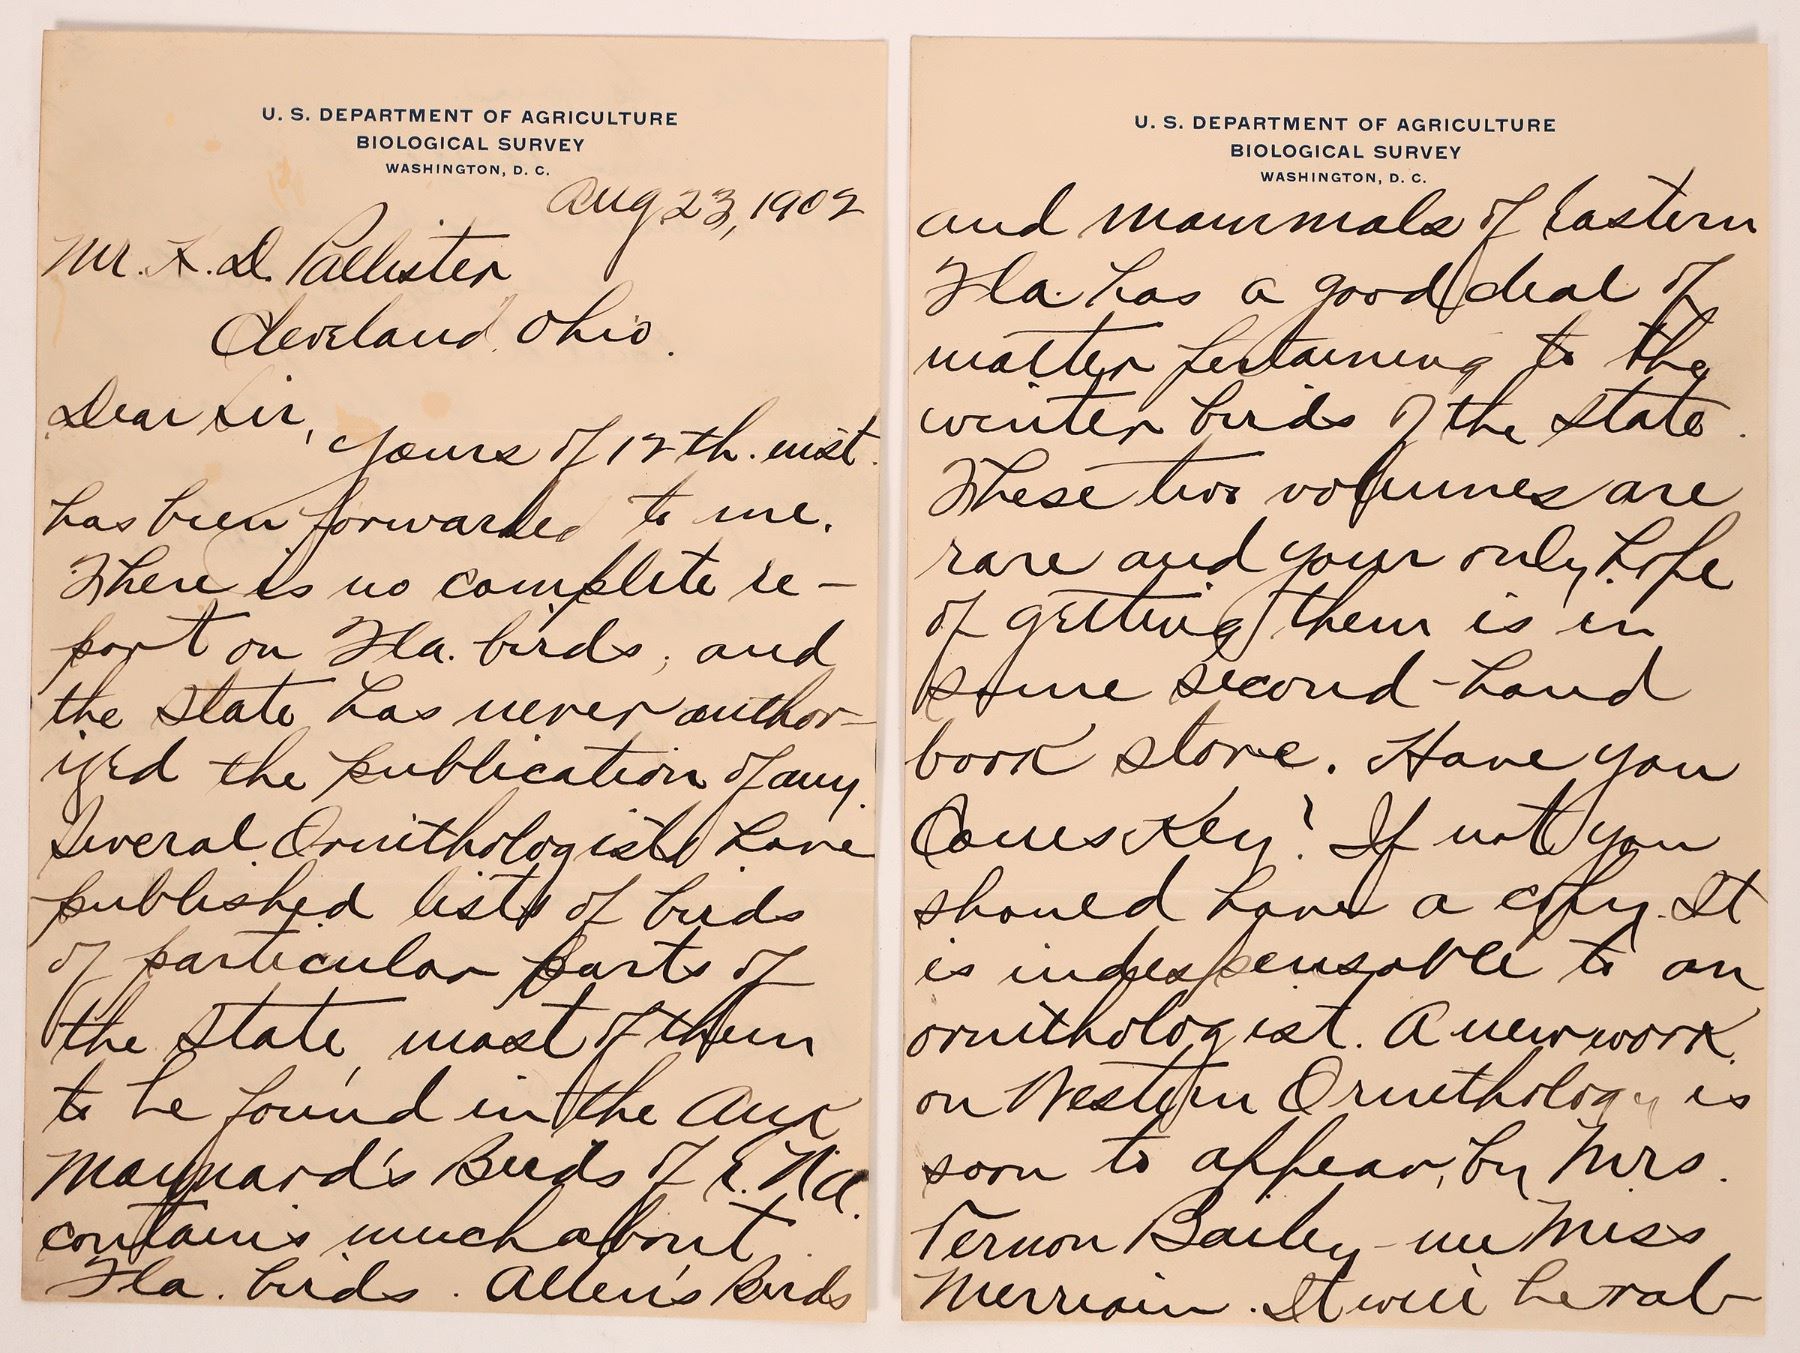 U. S. DEPARTMENT OF AGRICULTURE
BIOLOGICAL SURVEY
WASHINGTON, D. C.
Aug 23, 1902
Mr. K. D. Pallister
Cleveland, Ohio.
Dear Sir,
Yours of 12th. inst.
has been forwarded to me.
There is no complete re-
port on Fla. birds, and
the State has never author-
ized the publication of any.
Several Ornithologists have
published lists of birds
of particular parts of
the State, most of them
to be found in the Auk
Maynard's Birds of E. N.A.
contains much about
Fla. birds. Allen's Birds
U. S. DEPARTMENT OF AGRICULTURE
BIOLOGICAL SURVEY
WASHINGTON, D. C.
and mammals of Eastern
Fla. has a good deal of
matter pertaining to the
winter birds of the State.
These two volumes are
rare and your only hope
of getting them is in
some second-hand
book store. Have you
Coues Key? If not you
should have a copy. It
is indespensable to an
ornithologist. A new work
on Western Ornithology is
soon to appear, by Mrs.
Vernon Bailey - nee Miss
Merriam. It will be val-